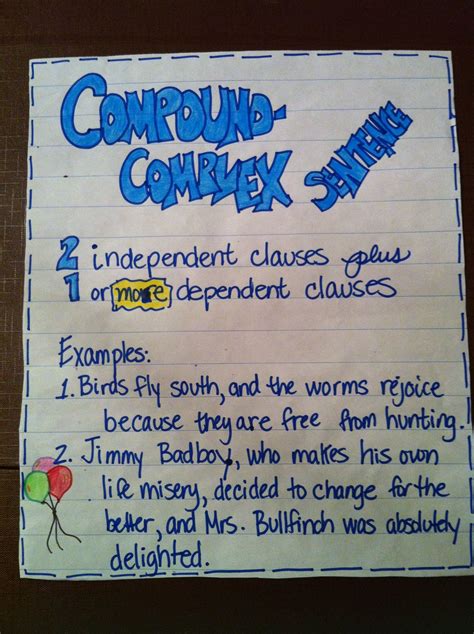 COMPOUND-
COMPLEX SENTENCE
2 independent clauses plus
1 or more dependent clauses
Examples:
1. Birds fly south, and the worms rejoice
because they are free from hunting.
2. Jimmy Badboy, who makes his own
life misery, decided to change for the
better, and Mrs. Bullfinch was absolutely
delighted.